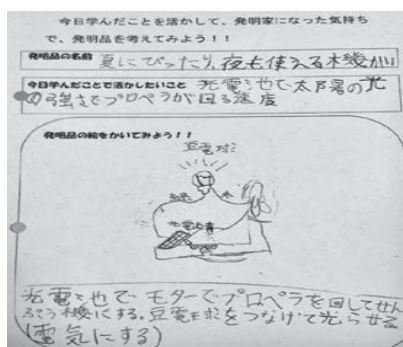 今日学んだことを活かして、発明家になった気持ち
で、発明品を考えてみよう！！
発明品の名前 夏にぴったり、夜も使える木幾かい
今日学んだことで活かしたいこと 光電池で太陽の光
の強さでプロペラが回る速度
発明品の絵をかいてみよう！！
豆電球
光電池
光電池でモターでプロペラを回してせん
ぷう機にする。豆電球をつなげて光らせる
(電気にする)